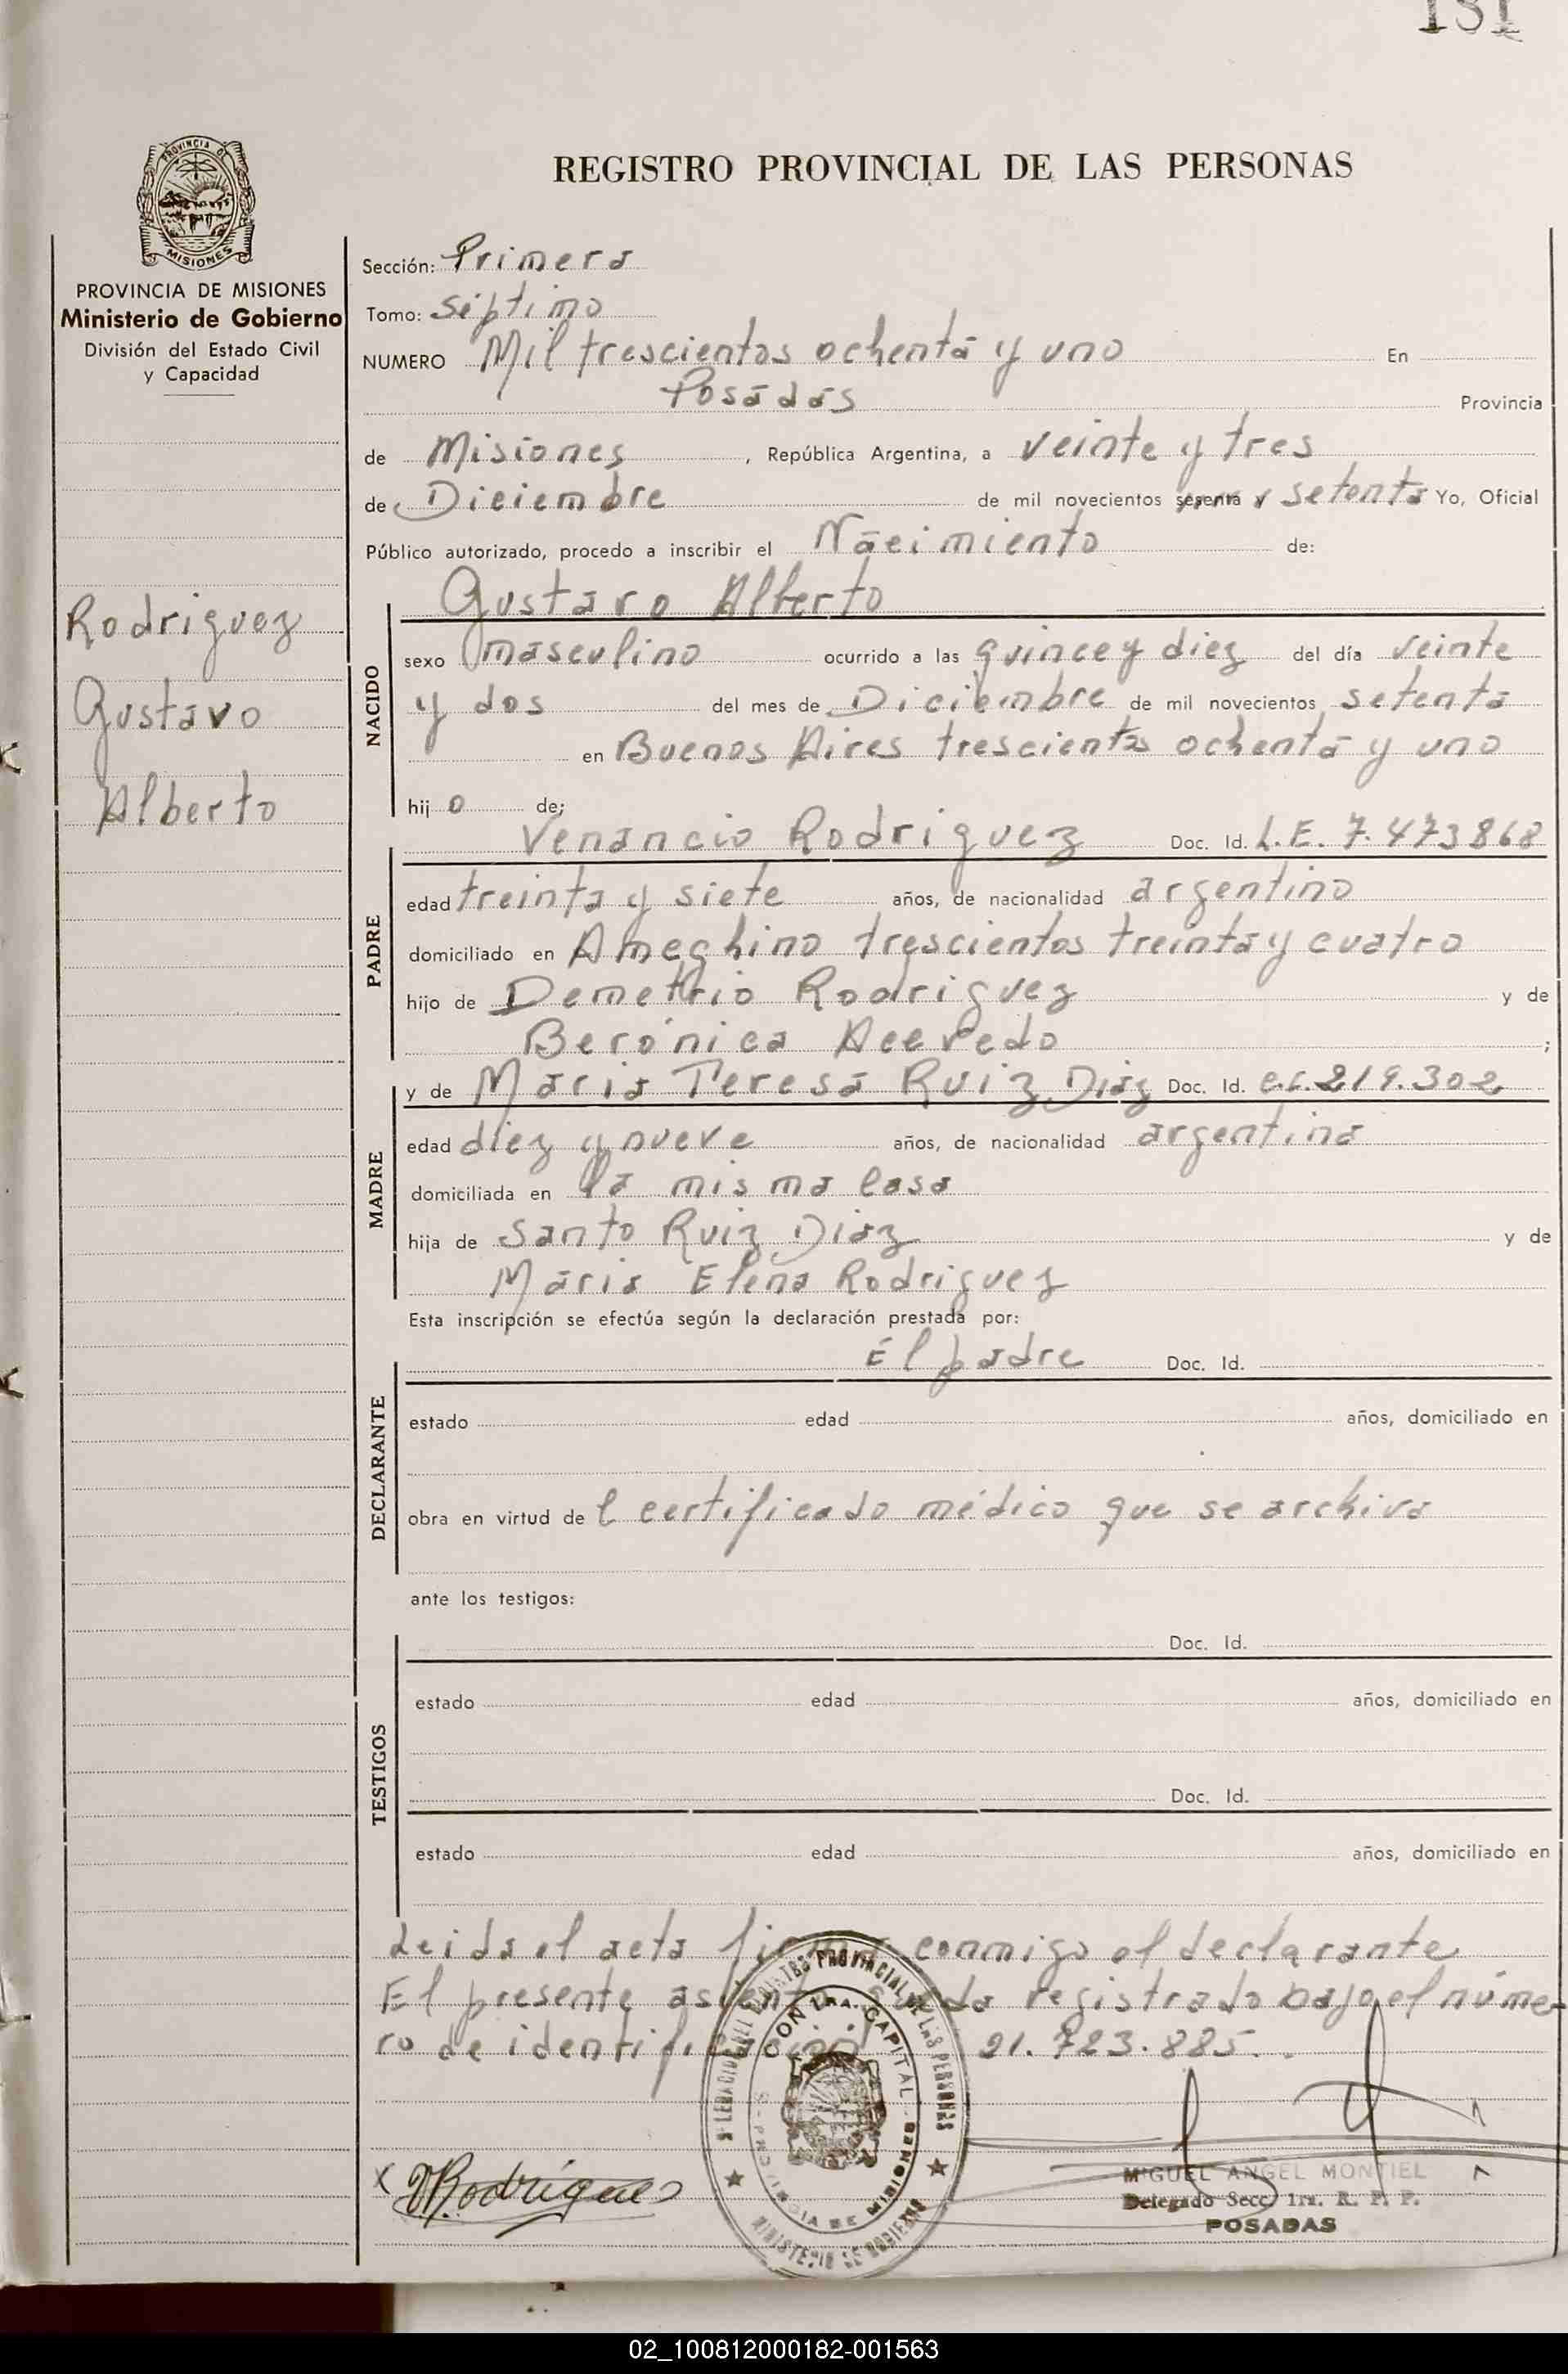 131
PROVINCIA DE
MISIONES
REGISTRO PROVINCIAL DE LAS PERSONAS
PROVINCIA DE MISIONES
Ministerio de Gobierno
División del Estado Civil
y Capacidad
Rodriguez
Gustavo
Alberto
Sección: Primera
Tomo: Séptimo
NUMERO Mil trescientos ochenta y uno En
Posadas Provincia
de Misiones, República Argentina, a veinte y tres
de Diciembre de mil novecientos sesenta y setenta Yo, Oficial
Público autorizado, procedo a inscribir el Nacimiento de:
Gustavo Alberto
NACIDO
sexo masculino ocurrido a las quince y diez del día veinte
y dos del mes de Diciembre de mil novecientos setenta
en Buenos Aires trescientos ochenta y uno
hijo de;
Venancio Rodriguez Doc. Id. L.E. 7.473868
PADRE
edad treinta y siete años, de nacionalidad argentino
domiciliado en Ameghino trescientos treinta y cuatro
hijo de Demetrio Rodriguez y de
Berónica Acevedo ;
y de Maria Teresa Ruiz Diaz Doc. Id. c.c. 219.302
MADRE
edad diez y nueve años, de nacionalidad argentina
domiciliada en la misma casa
hija de Santo Ruiz Diaz y de
Maria Elena Rodriguez
Esta inscripción se efectúa según la declaración prestada por:
El padre Doc. Id.
DECLARANTE
estado edad años, domiciliado en
obra en virtud de l certificado médico que se archiva
ante los testigos:
Doc. Id.
TESTIGOS
estado edad años, domiciliado en
Doc. Id.
estado edad años, domiciliado en
Leida el acta firma conmigo el declarante
El presente asiento queda registrado bajo el núme-
ro de identificación 21.723.885.
PROVINCIAL DE LAS PERSONAS
CON 1RA. CAPITAL - PROVINCIA DE MISIONES
MINISTERIO DE GOBIERNO
X VRodriguez
MIGUEL ANGEL MONTIEL
Delegado Secc. 1ra. R. P. P.
POSADAS
02_100812000182-001563